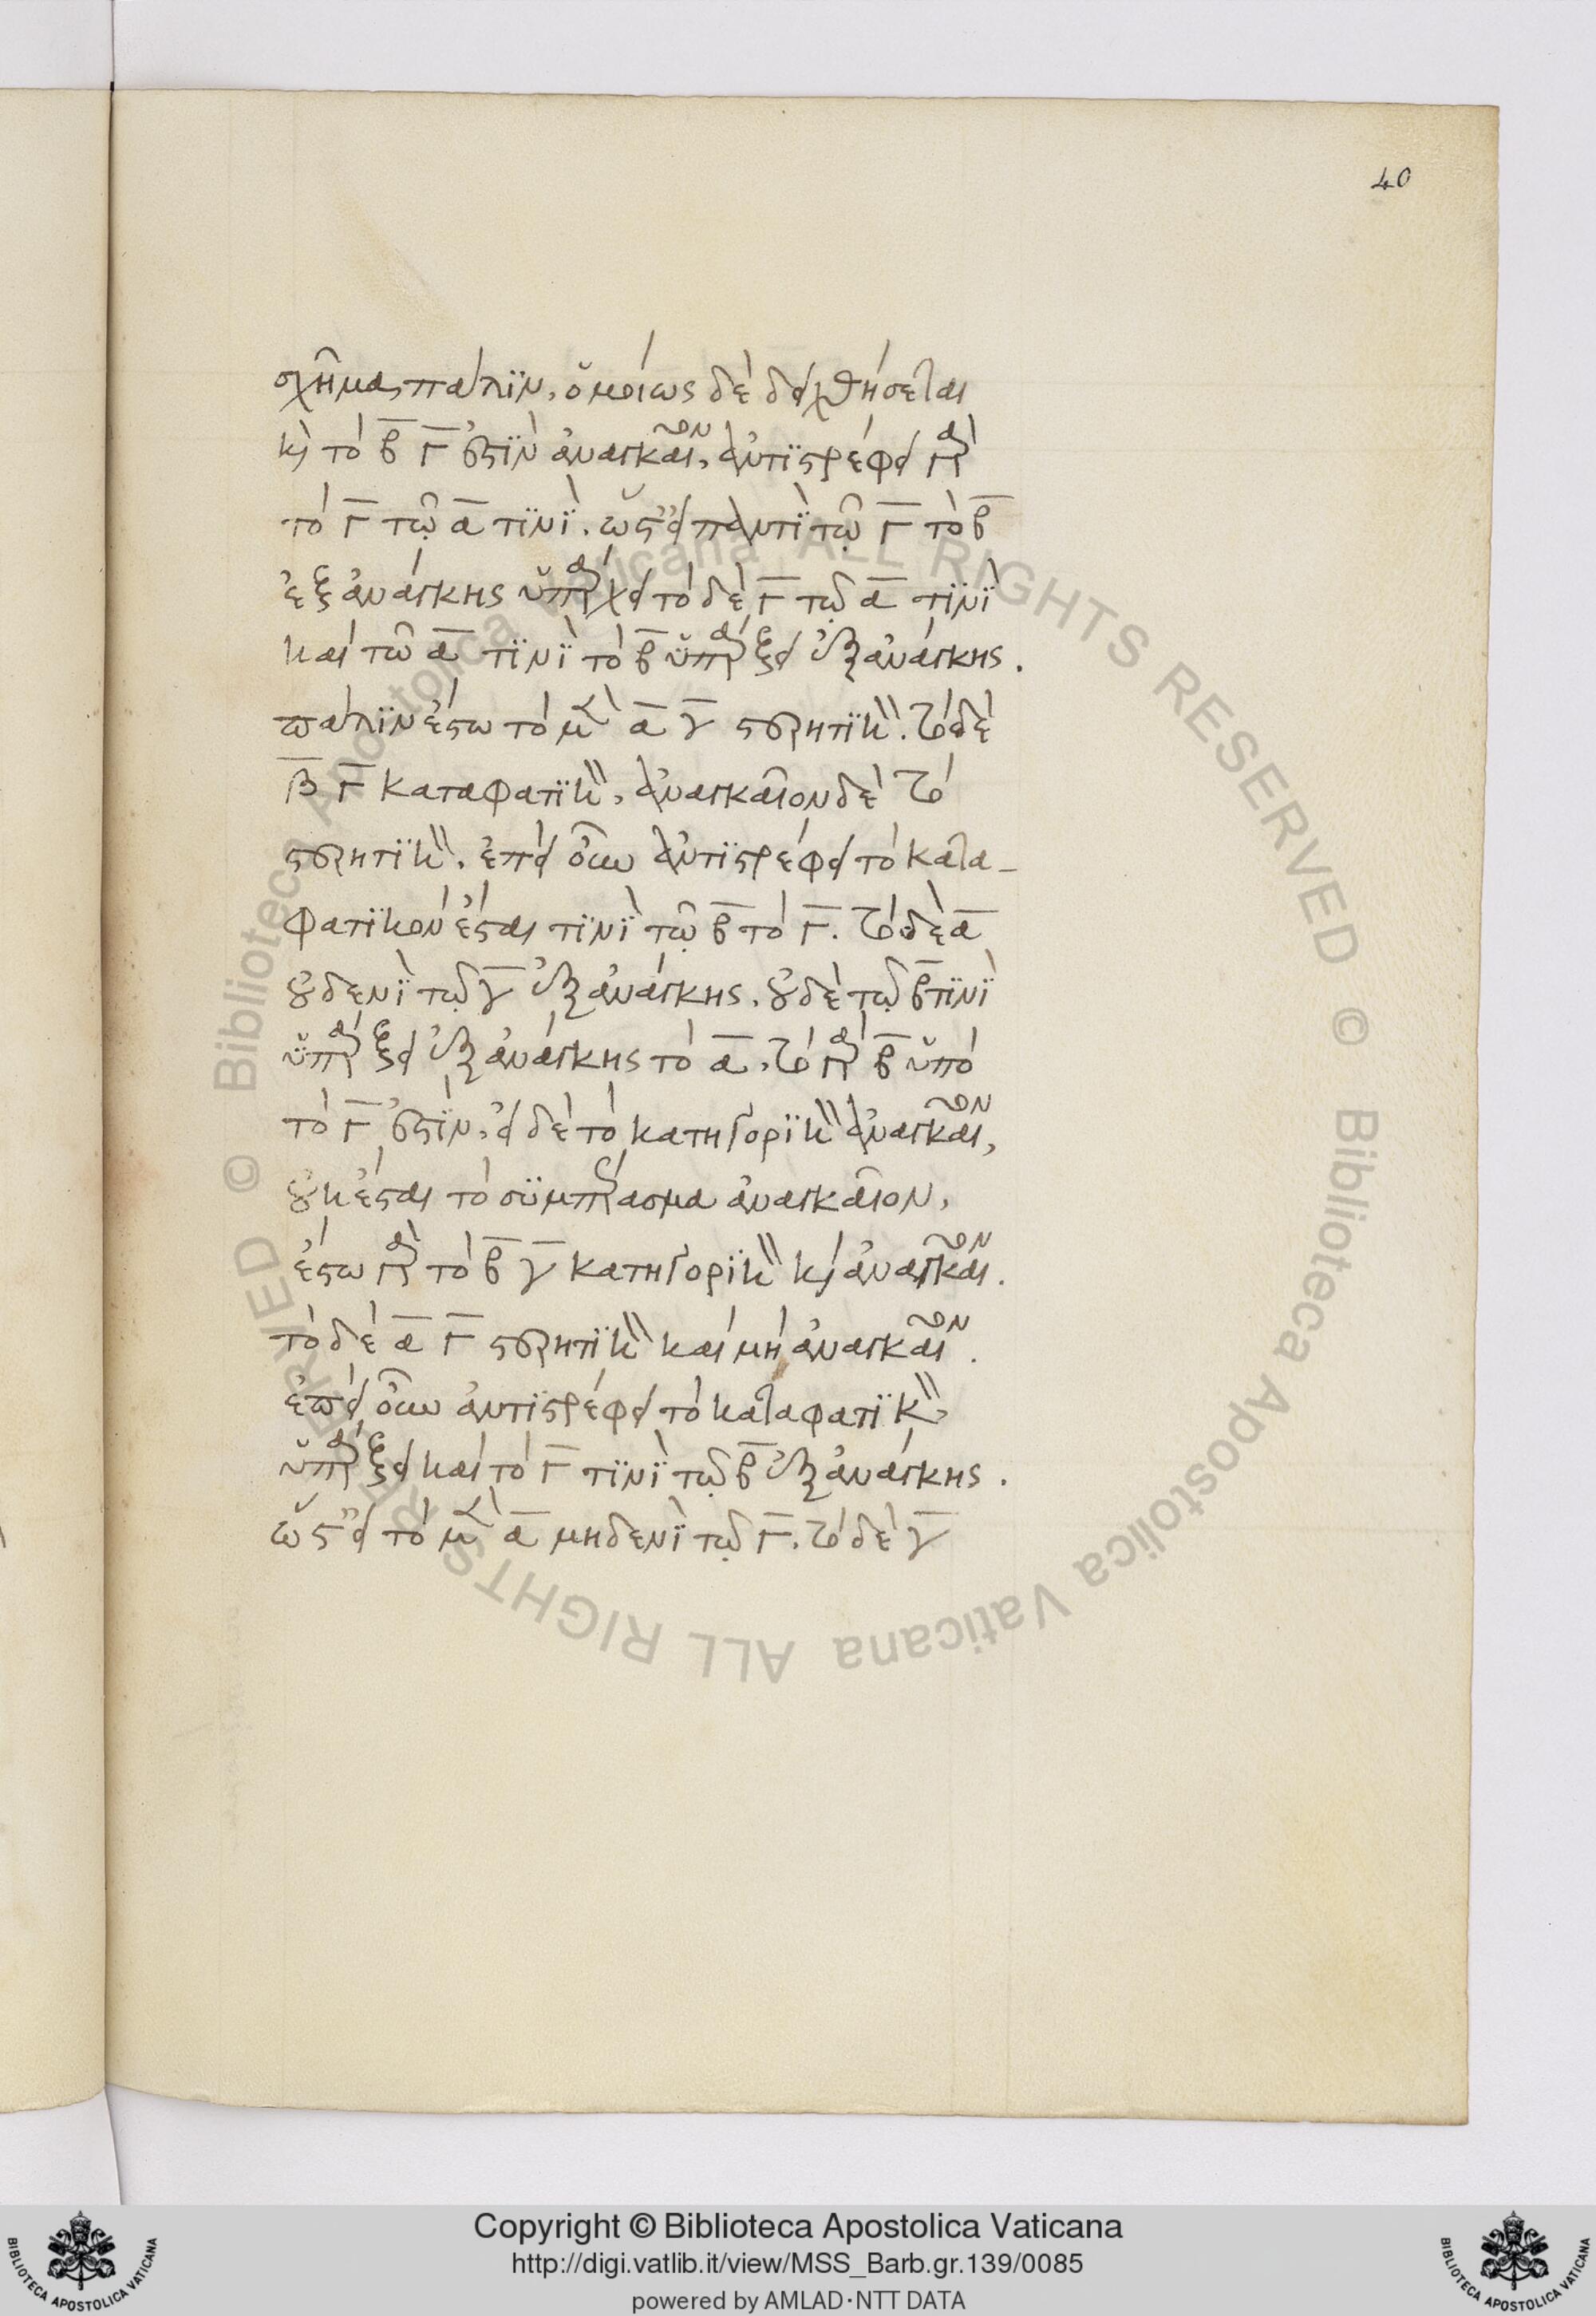 40
σχῆμα, πάλιν, ὁμοίως δὲ δειχθήσεται
κ(αὶ) τὸ β̅ Γ̅ ἐστὶν ἀναγκαῖον, ἀντιστρέφει γὰρ
τὸ Γ̅ τῷ α̅ τινί. ὥστ' εἰ παντὶ τῷ Γ̅ τὸ β̅
ἐξ ἀνάγκης ὑπάρχει τὸ δὲ Γ̅ τῷ α̅ τινὶ
καὶ τῷ α̅ τινὶ τὸ β̅ ὑπάρξει ἐξ ἀνάγκης.
πάλιν ἔστω τὸ μὲν α̅ γ̅ στερητικὸν. τὸ δὲ
β̅ Γ̅ καταφατικὸν, ἀναγκαῖον δὲ τὸ
στερητικὸν. ἐπεὶ οὖν ἀντιστρέφει τὸ κατα-
φατικὸν ἔσται τινὶ τῷ β̅ τὸ Γ̅. τὸ δὲ α̅
οὐδενὶ τῷ γ̅ ἐξ ἀνάγκης. οὐδὲ τῷ β̅ τινὶ
ὑπάρξει ἐξ ἀνάγκης τὸ α̅. τὸ γὰρ β̅ ὑπὸ
τὸ Γ̅ ἐστὶν, εἰ δὲ τὸ κατηγορικὸν ἀναγκαῖον,
οὐκ ἔσται τὸ συμπέρασμα ἀναγκαῖον,
ἔστω γὰρ τὸ β̅ γ̅ κατηγορικὸν κ(αὶ) ἀναγκαῖον.
τὸ δὲ α̅ Γ̅ στερητικὸν καὶ μὴ ἀναγκαῖον.
ἐπεὶ οὖν ἀντιστρέφει τὸ καταφατικὸν,
ὑπάρξει καὶ τὸ Γ̅ τινὶ τῷ β̅ ἐξ ἀνάγκης.
ὥστ' εἰ τὸ μὲν α̅ μηδενὶ τῷ Γ̅. τὸ δὲ γ̅
© Biblioteca Apostolica Vaticana ALL RIGHTS RESERVED © Biblioteca Apostolica Vaticana ALL RIGHTS RESERVED
BIBLIOTECA APOSTOLICA VATICANA
Copyright © Biblioteca Apostolica Vaticana
http://digi.vatlib.it/view/MSS_Barb.gr.139/0085
powered by AMLAD·NTT DATA
BIBLIOTECA APOSTOLICA VATICANA